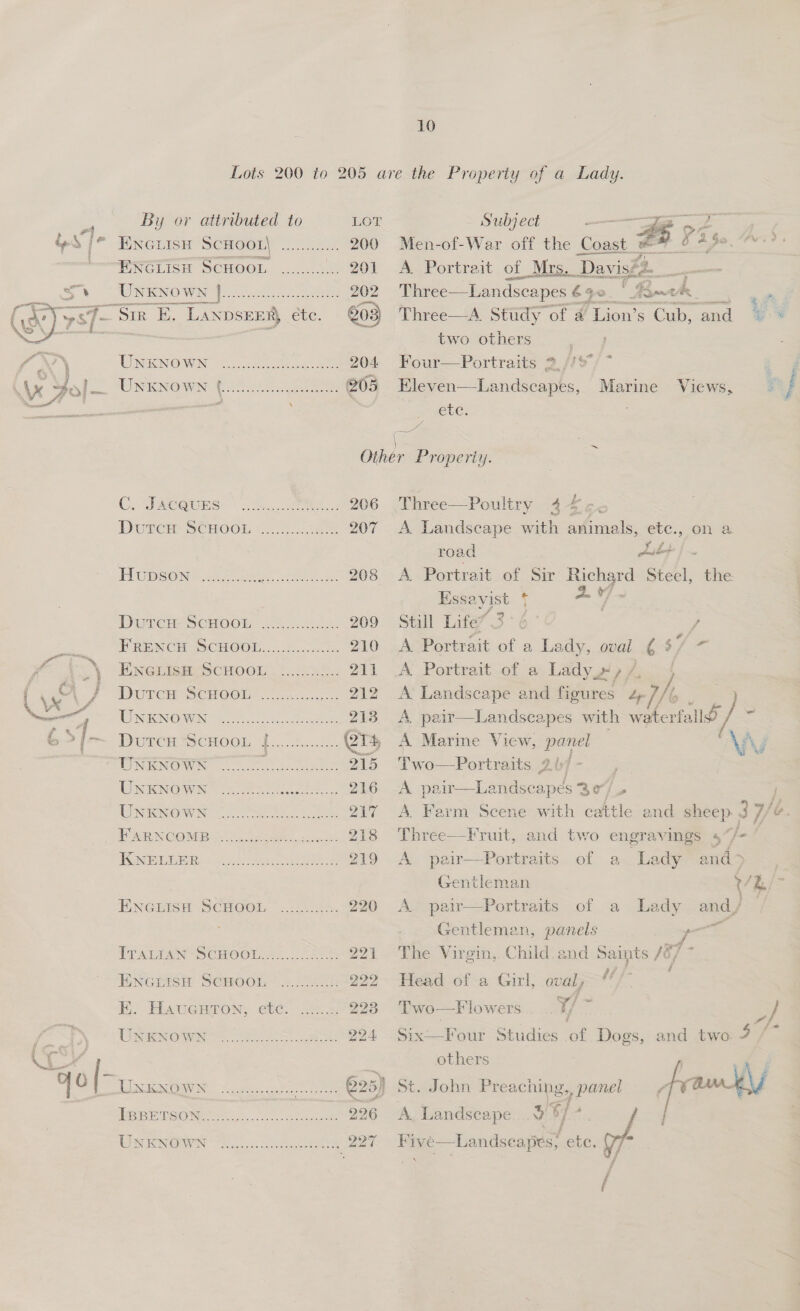 10
Lots 200 to 205 are the Property of a Lady.
By or attributed to LOT Subject
ENGLISH SCHOOL ............ 200 Men-of-War off the Coast
ENGLISH SCHOOL ............ 201 A Portrait of Mrs. Davis
UNKNOWN ........................ 202 Three—Landscapes
SIR E. LANDSEER, etc. 203 Three—A Study of a Lion's Cub, and
two others
UNKNOWN ........................ 204 Four—Portraits
UNKNOWN ........................ 205 Eleven—Landscapes, Marine Views,
etc.
Other Property.
C. JACQUES ..................... 206 Three—Poultry
DUTCH SCHOOL ............... 207 A Landscape with animals, etc., on a
road
HUDSON ........................... 208 A Portrait of Sir Richard Steel, the
Essayist
DUTCH SCHOOL ............... 209 Still Life
FRENCH SCHOOL ............... 210 A Portrait of a Lady, oval
ENGLISH SCHOOL ............ 211 A Portrait of a Lady
DUTCH SCHOOL ............... 212 A Landscape and figures
UNKNOWN ........................ 213 A pair—Landscapes with waterfalls
DUTCH SCHOOL ............... 214 A Marine View, panel
UNKNOWN ........................ 215 Two—Portraits
UNKNOWN ........................ 216 A pair—Landscapes
UNKNOWN ........................ 217 A Farm Scene with cattle and sheep
FARNCOMB ..................... 218 Three—Fruit, and two engravings
KNELLER ........................ 219 A pair—Portraits of a Lady and
Gentleman
ENGLISH SCHOOL ............ 220 A pair—Portraits of a Lady and
Gentleman, panels
ITALIAN SCHOOL ............... 221 The Virgin, Child and Saints
ENGLISH SCHOOL ............ 222 Head of a Girl, oval
E. HAUGHTON, etc. ........ 223 Two—Flowers
UNKNOWN ........................ 224 Six—Four Studies of Dogs, and two
others
UNKNOWN ........................ 225 St. John Preaching, panel
IBBETSON ........................ 226 A Landscape
UNKNOWN ........................ 227 Five—Landscapes, etc.